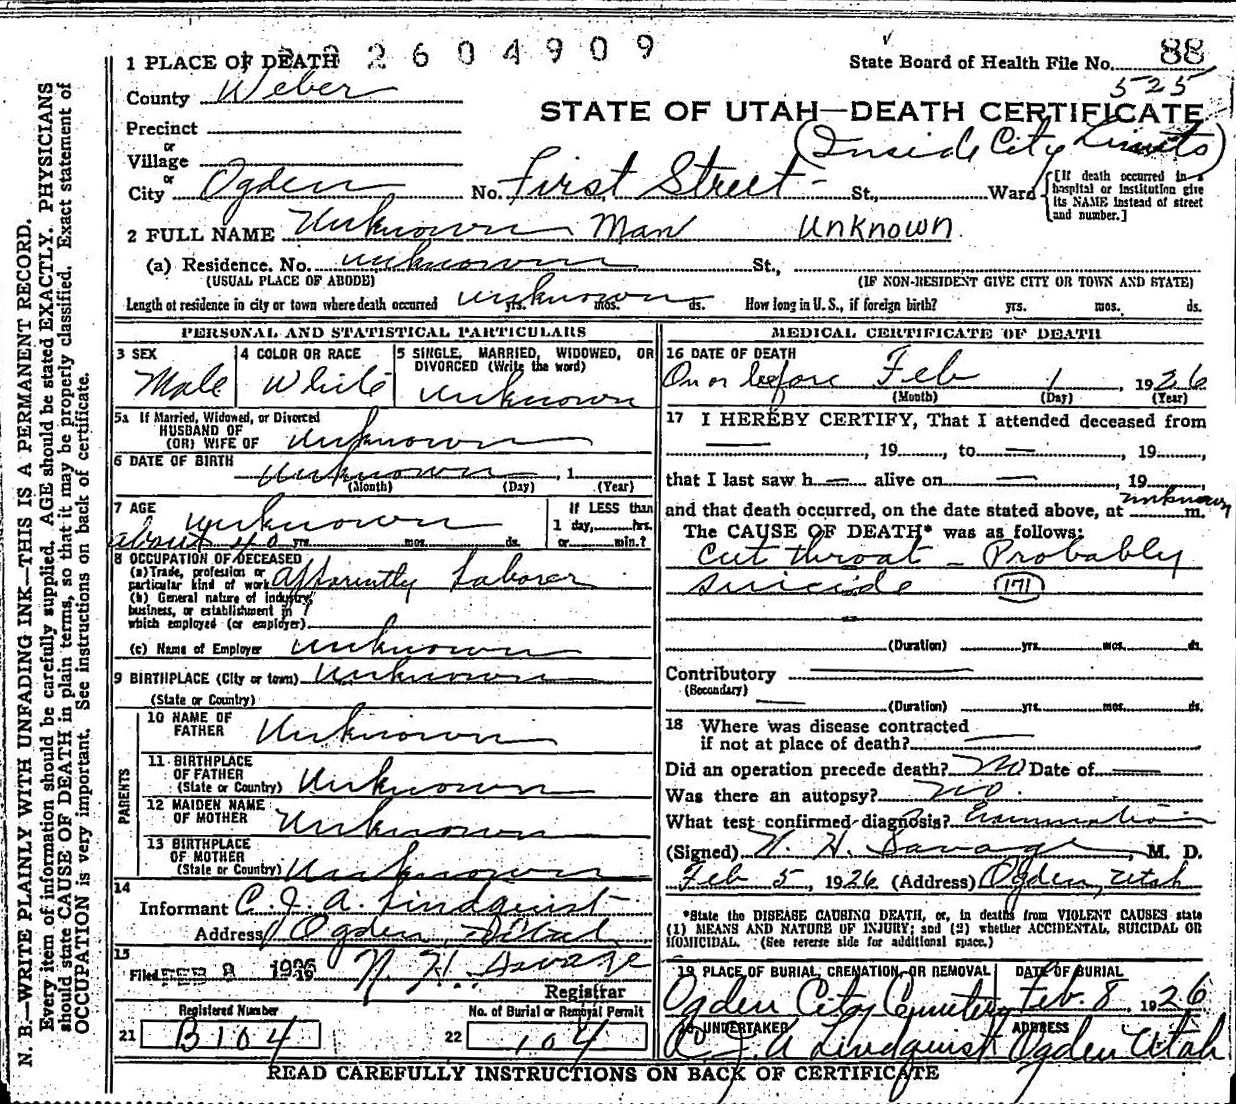 2604909
1 PLACE OF DEATH
State Board of Health File No. 88
525
County Weber
STATE OF UTAH—DEATH CERTIFICATE
Precinct
or
(Inside City Limits)
Village
or
City Ogden No. First Street - St, Ward
[If death occurred in a hospital or institution give its NAME instead of street and number.]
2 FULL NAME Unknown Man Unknown.
(a) Residence. No. unknown St.,
(USUAL PLACE OF ABODE) (IF NON-RESIDENT GIVE CITY OR TOWN AND STATE)
Length of residence in city or town where death occurred unknown yrs. mos. ds. How long in U. S., if foreign birth? yrs. mos. ds.
PERSONAL AND STATISTICAL PARTICULARS
3 SEX
Male
4 COLOR OR RACE
White
5 SINGLE, MARRIED, WIDOWED, OR
DIVORCED (Write the word)
unknown
5a If Married, Widowed, or Divorced
HUSBAND OF
(OR) WIFE OF unknown
6 DATE OF BIRTH
unknown , 1
(Month) (Day) (Year)
7 AGE
unknown
about 40 yrs. mos. ds.
If LESS than
1 day, hrs.
or min.?
8 OCCUPATION OF DECEASED
(a) Trade, profession or
particular kind of work apparently Laborer
(b) General nature of industry,
business, or establishment in
which employed (or employer)
(c) Name of Employer unknown
9 BIRTHPLACE (City or town) unknown
(State or Country)
PARENTS
10 NAME OF
FATHER Unknown
11 BIRTHPLACE
OF FATHER
(State or Country) Unknown
12 MAIDEN NAME
OF MOTHER Unknown
13 BIRTHPLACE
OF MOTHER
(State or Country) Unknown
14
Informant C. J. A. Lindquist
Address Ogden, Utah
15
Filed FEB 8 1926 N. H. Savage
Registrar
Registered Number
21 B104
No. of Burial or Removal Permit
22 104
MEDICAL CERTIFICATE OF DEATH
16 DATE OF DEATH
On or before Feb 1, 1926
(Month) (Day) (Year)
17 I HEREBY CERTIFY, That I attended deceased from
— , 19 , to — , 19 ,
that I last saw h — alive on — , 19 ,
unknown
and that death occurred, on the date stated above, at m.
The CAUSE OF DEATH* was as follows:
Cut throat - Probably
suicide (171)
(Duration) yrs. mos. ds.
Contributory
(Secondary)
(Duration) yrs. mos. ds.
18 Where was disease contracted
if not at place of death? —
Did an operation precede death? no Date of —
Was there an autopsy? no.
What test confirmed diagnosis? Examination
(Signed) N. H. Savage, M. D.
Feb 5, 1926 (Address) Ogden, Utah
*State the DISEASE CAUSING DEATH, or, in deaths from VIOLENT CAUSES state
(1) MEANS AND NATURE OF INJURY; and (2) whether ACCIDENTAL, SUICIDAL OR
HOMICIDAL. (See reverse side for additional space.)
19 PLACE OF BURIAL, CREMATION, OR REMOVAL DATE OF BURIAL
Ogden City Cemetery Feb. 8, 1926
20 UNDERTAKER ADDRESS
C. J. A Lindquist Ogden Utah
READ CAREFULLY INSTRUCTIONS ON BACK OF CERTIFICATE
N. B.—WRITE PLAINLY WITH UNFADING INK—THIS IS A PERMANENT RECORD.
Every item of information should be carefully supplied. AGE should be stated EXACTLY. PHYSICIANS
should state CAUSE OF DEATH in plain terms, so that it may be properly classified. Exact statement of
OCCUPATION is very important. See instructions on back of certificate.